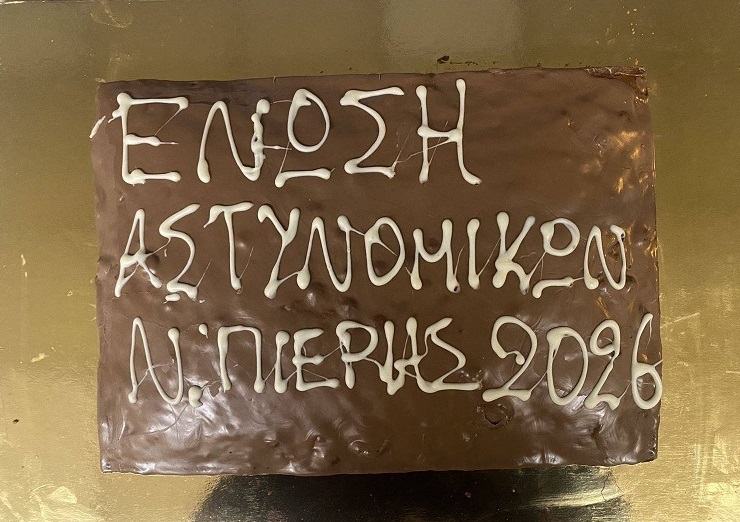 ΕΝΩΣΗ
ΑΣΤΥΝΟΜΙΚΩΝ
Ν. ΠΙΕΡΙΑΣ 2026